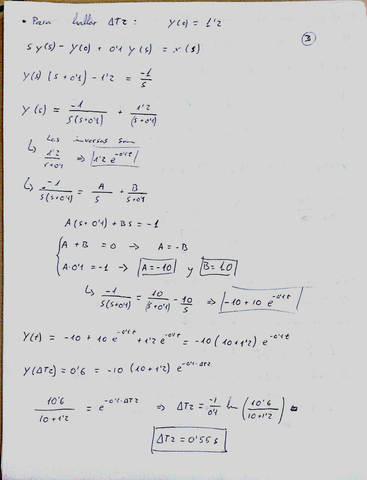 • Para hallar ΔT2 : y(0) = 1'2
③
s y(s) - y(0) + 0'1 y(s) = x(s)
y(s) (s + 0'1) - 1'2 = -1/s
y(s) = -1/(s(s+0'1)) + 1'2/(s+0'1)
↳ Las inversas son
1'2/(s+0'1) ⇒ 1'2 e^(-0'1t)
↳ -1/(s(s+0'1)) = A/s + B/(s+0'1)
A(s+0'1) + Bs = -1
A + B = 0 → A = -B
A·0'1 = -1 → A = -10 y B = 10
↳ -1/(s(s+0'1)) = 10/(s+0'1) - 10/s ⇒ -10 + 10 e^(-0'1t)
y(t) = -10 + 10 e^(-0'1t) + 1'2 e^(-0'1t) = -10 (10+1'2) e^(-0'1t)
y(ΔT2) = 0'6 = -10 (10+1'2) e^(-0'1·ΔT2)
10'6/(10+1'2) = e^(-0'1·ΔT2) ⇒ ΔT2 = -1/0'1 ln (10'6/(10+1'2))
ΔT2 = 0'55 s